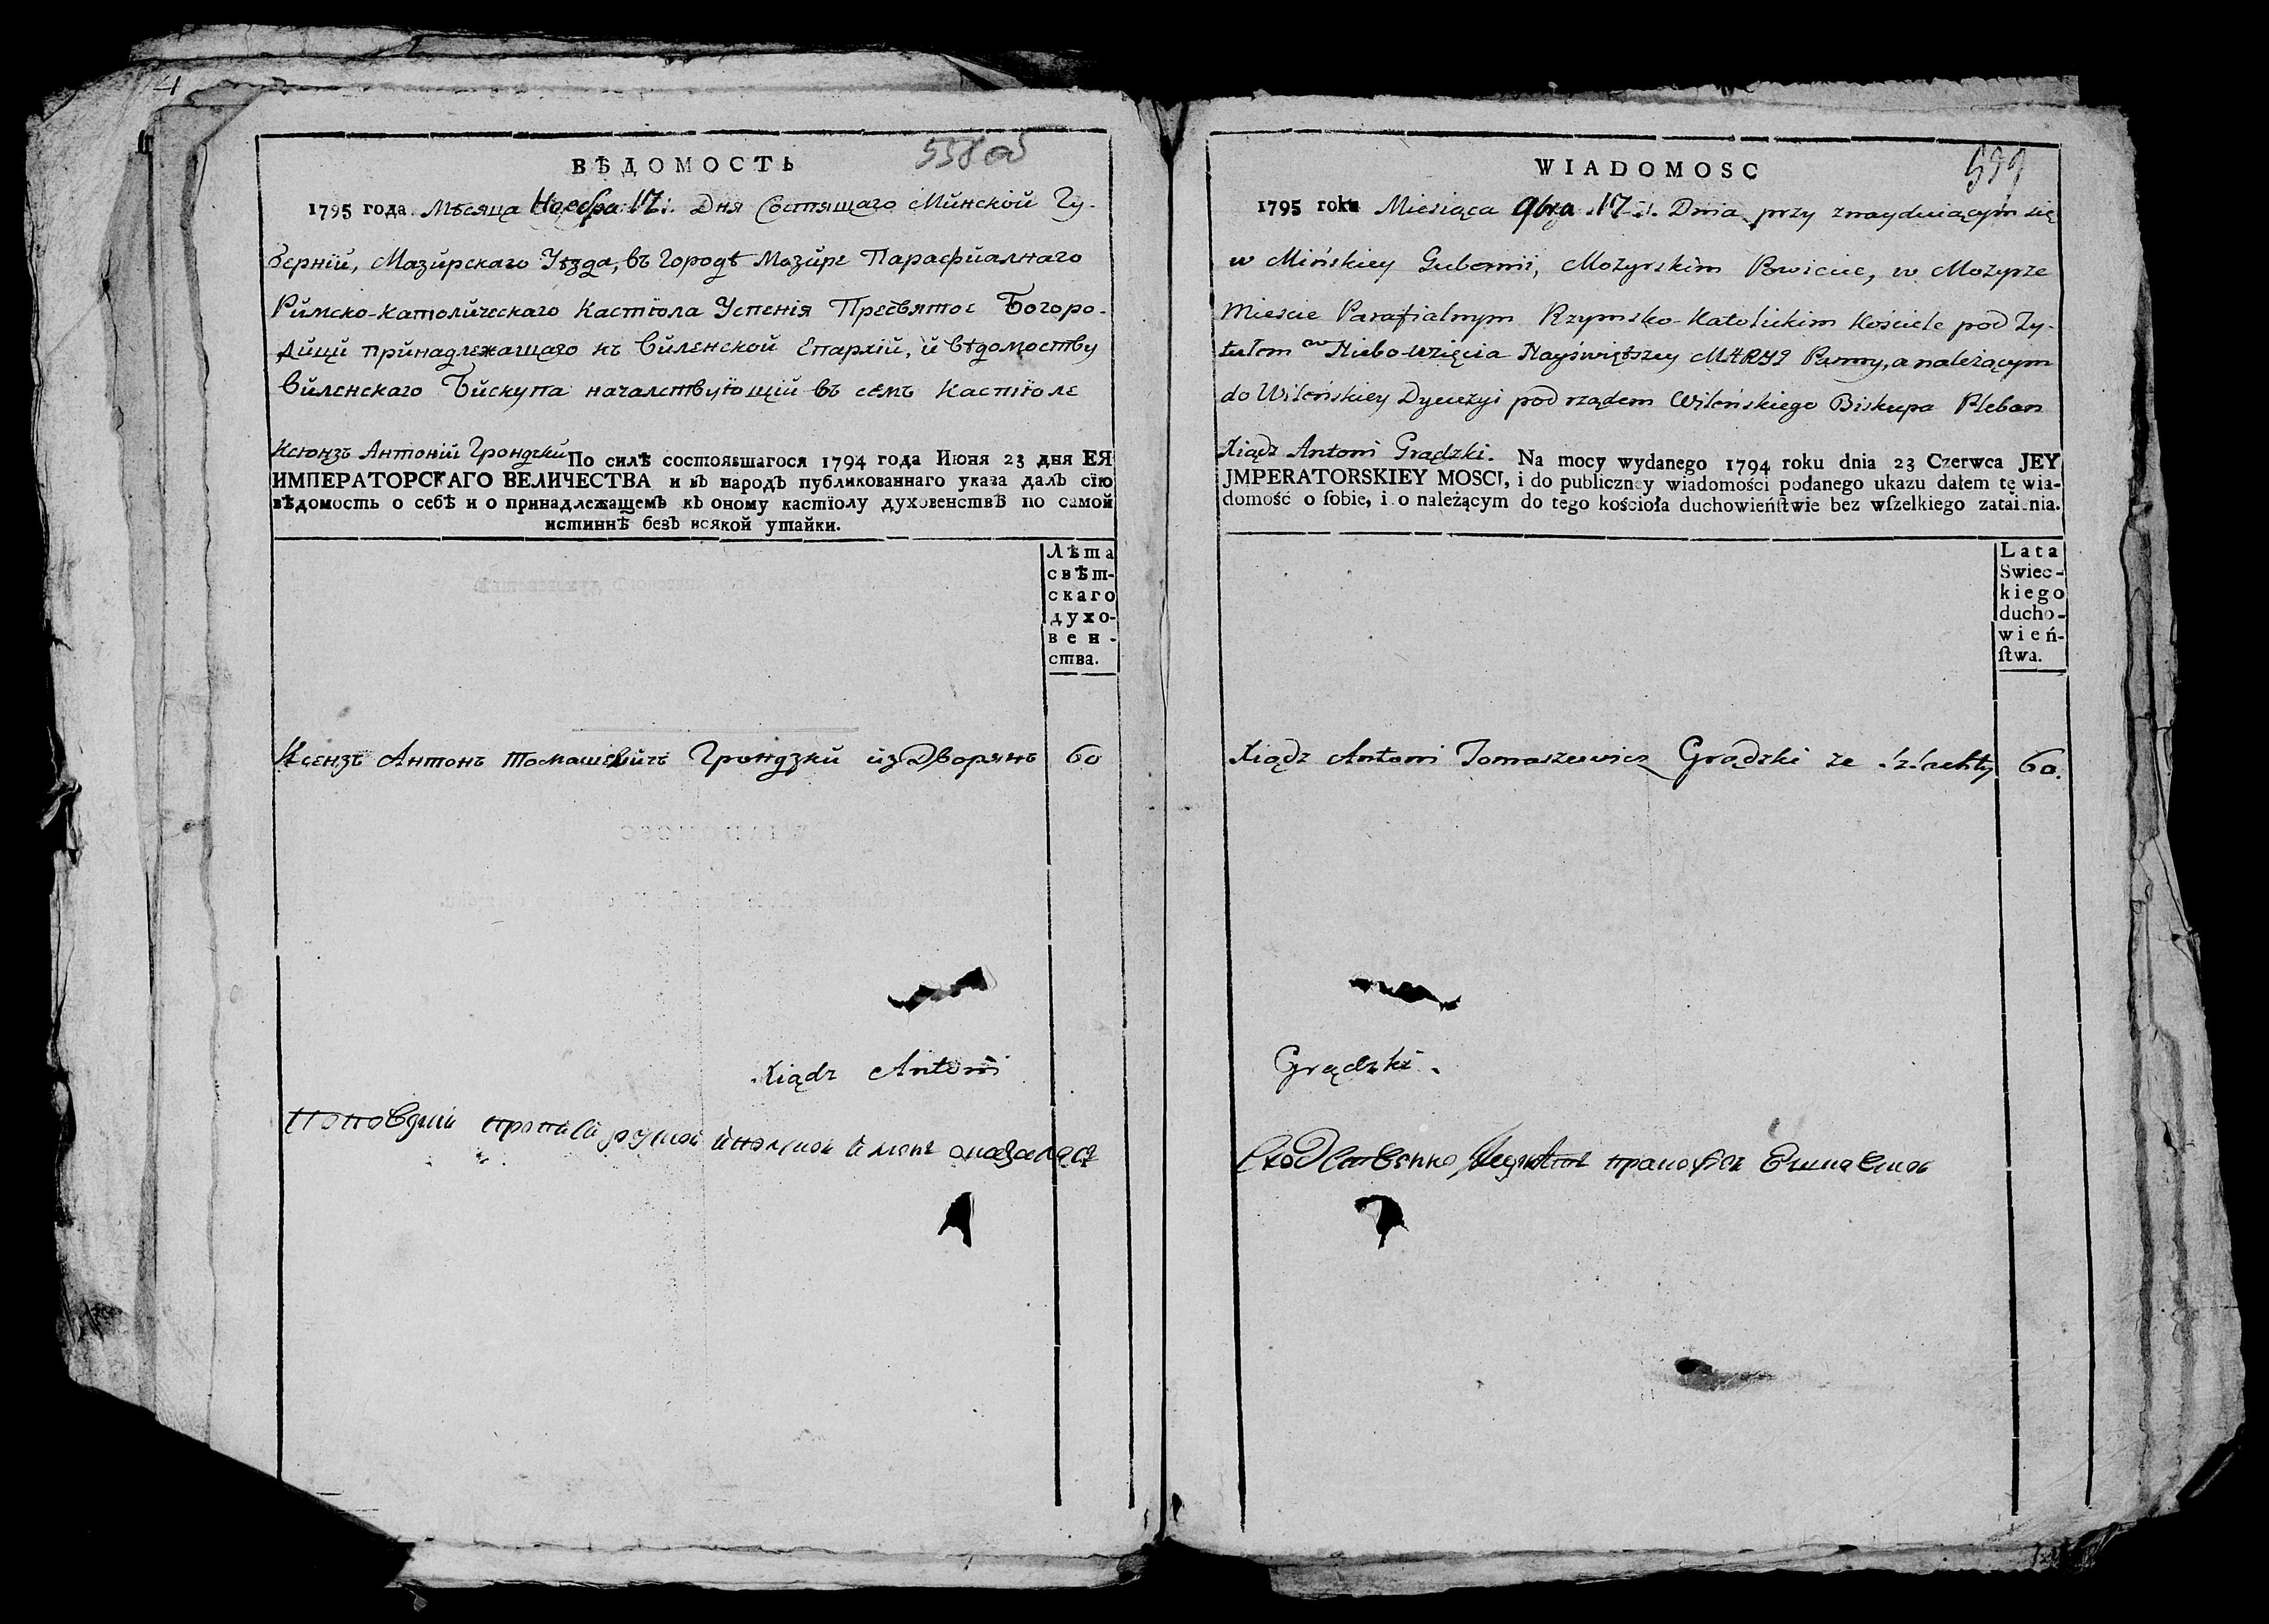 4
ВѢДОМОСТЬ
558 об
1795 года. Мѣсяца Ноебра 17: Дня Состящаго Минской Гу-
берніи, Мазирскаго Уѣзда, въ Городѣ Мазире Парафиалнаго
Римско-католическаго Кастіола Успенія Пресвятое Богоро-
дици принадлежащаго къ Виленской Епархіи, и вѣдомоству
Виленскаго Бискупа началствующій въ семъ Кастіоле
Ксюнзъ Антоній Грондзки По силѣ состоявшагося 1794 года Июня 23 дня ЕЯ
ИМПЕРАТОРСКАГО ВЕЛИЧЕСТВА и въ народъ публикованнаго указа далъ сїю
вѣдомость о себѣ и о принадлежащемъ къ оному кастїолу духовенствѣ по самой
истиннѣ безъ всякой утайки.
Лѣта
свѣт-
скаго
духо-
вен-
ства.
Ксензъ Антонъ Томашевичъ Грондзки из Дворянъ 60
Xiądz Antoni
WIADOMOSC
559
1795 roku Miesiąca 9bra 17 Dnia przy znayduiącym się
w Mińskiey Gubernii, Mozyrskim Powiecie, w Mozyrze
Mieście Parafialnym Rzymsko-Katolickim Kościele pod Ty-
tułem w Niebo-wzięcia Nayświętszey MARYI Panny, a należącym
do Wileńskiey Dyecezyi pod rządem Wileńskiego Biskupa Pleban
Xiądz Antoni Grądzki. Na mocy wydanego 1794 roku dnia 23 Czerwca JEY
JMPERATORSKIEY MOSCI, i do publiczney wiadomości podanego ukazu dałem tę wia-
domość o ſobie, i o należącym do tego kościoła duchowieńſtwie bez wſzelkiego zataienia.
Lata
Swiec-
kiego
ducho-
wień-
ſtwa.
Xiądz Antoni Tomaszewicz Grądzki ze Szlachty 60.
Grądzki.